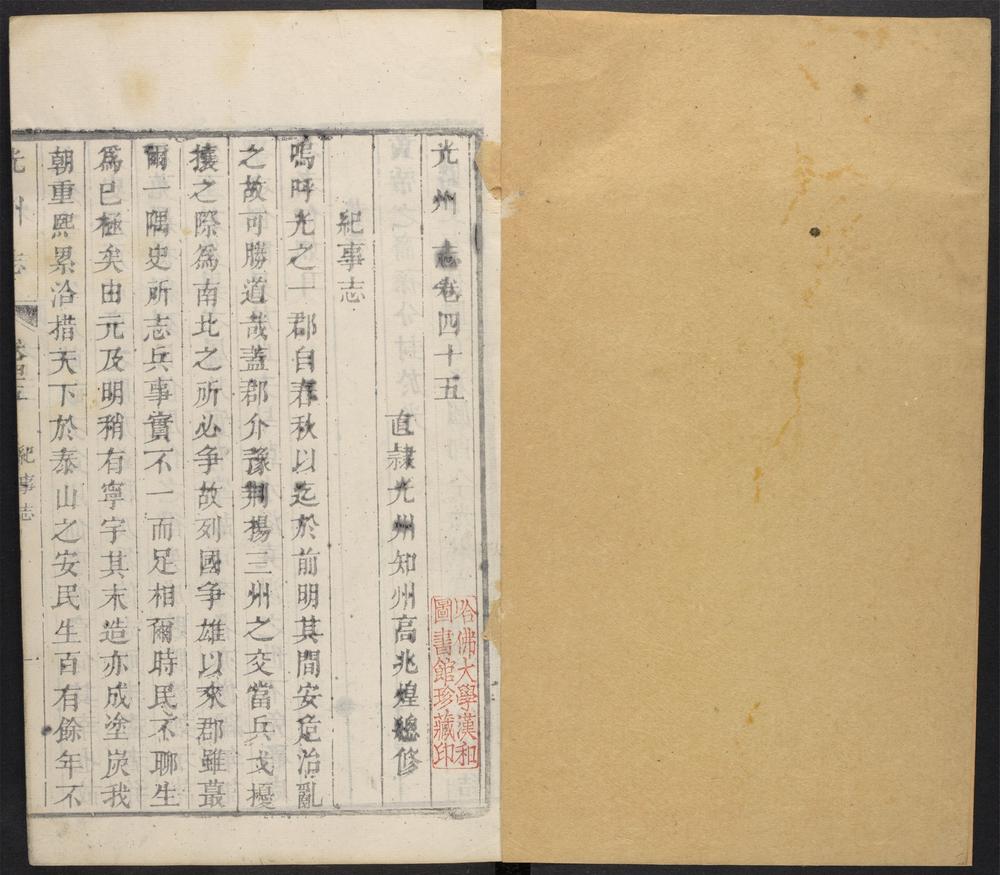 光州志卷四十五
直隸光州知州高兆煌總修
紀事志
嗚呼光之一郡自春秋以迄於前明其間安危治亂
之故可勝道哉蓋郡介豫荆揚三州之交當兵戈擾
攘之際爲南北之所必争故列國争雄以來郡雖蕞
爾一隅史所志兵事實不一而足相爾時民不聊生
爲已極矣由元及明稍有寧宇其末造亦成塗炭我
朝重熙累洽措天下於泰山之安民生百有餘年不
光州志
卷四十五
紀事志
一
哈佛大學漢和
圖書館珍藏印